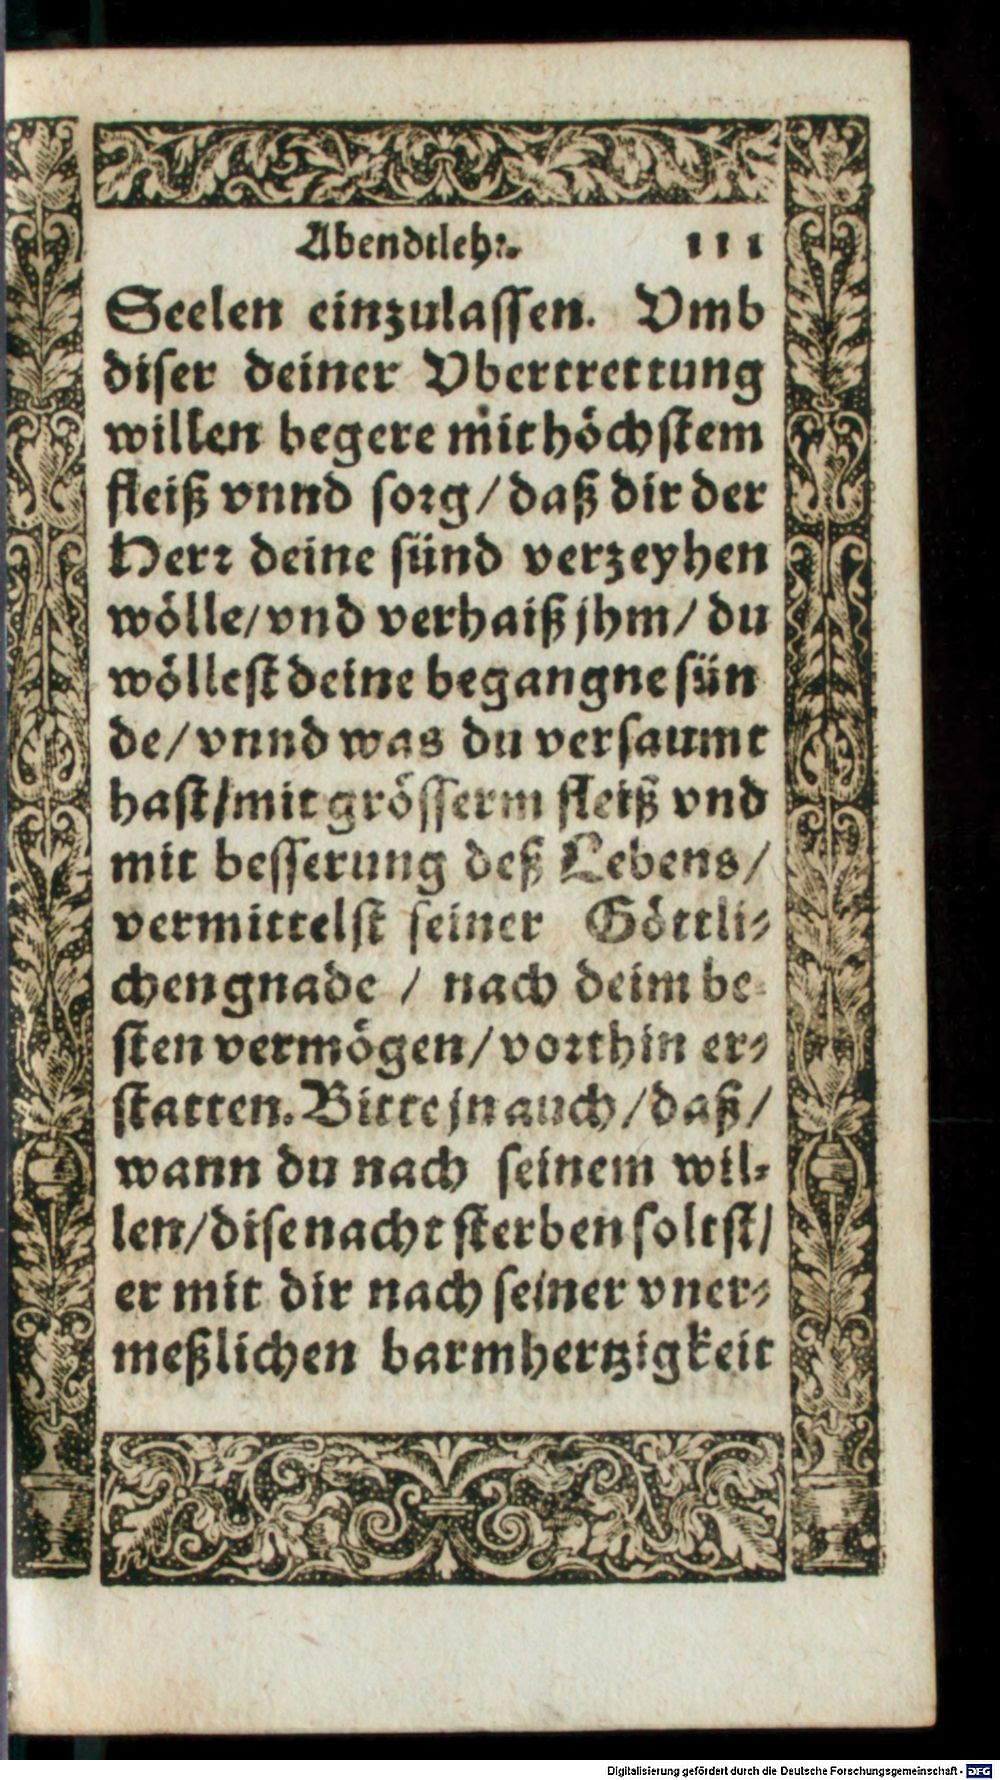 Abendtlehr. 111
Seelen einzulassen. Vmb
diser deiner Vbertrettung
willen begere mit höchstem
fleiß vnnd sorg/ daß dir der
Herr deine sünd verzeyhen
wölle/ vnd verhaiß jhm/ du
wöllest deine begangne sün
de/ vnnd was du versaumt
hast/ mit grösserm fleiß vnd
mit besserung deß Lebens/
vermittelst seiner Göttli-
chen gnade / nach deim be-
sten vermögen/ vorthin er-
statten. Bitte jn auch/ daß/
wann du nach seinem wil-
len/ dise nacht sterben soltst/
er mit dir nach seiner vner-
meßlichen barmhertzigkeit
Digitalisierung gefördert durch die Deutsche Forschungsgemeinschaft - DFG